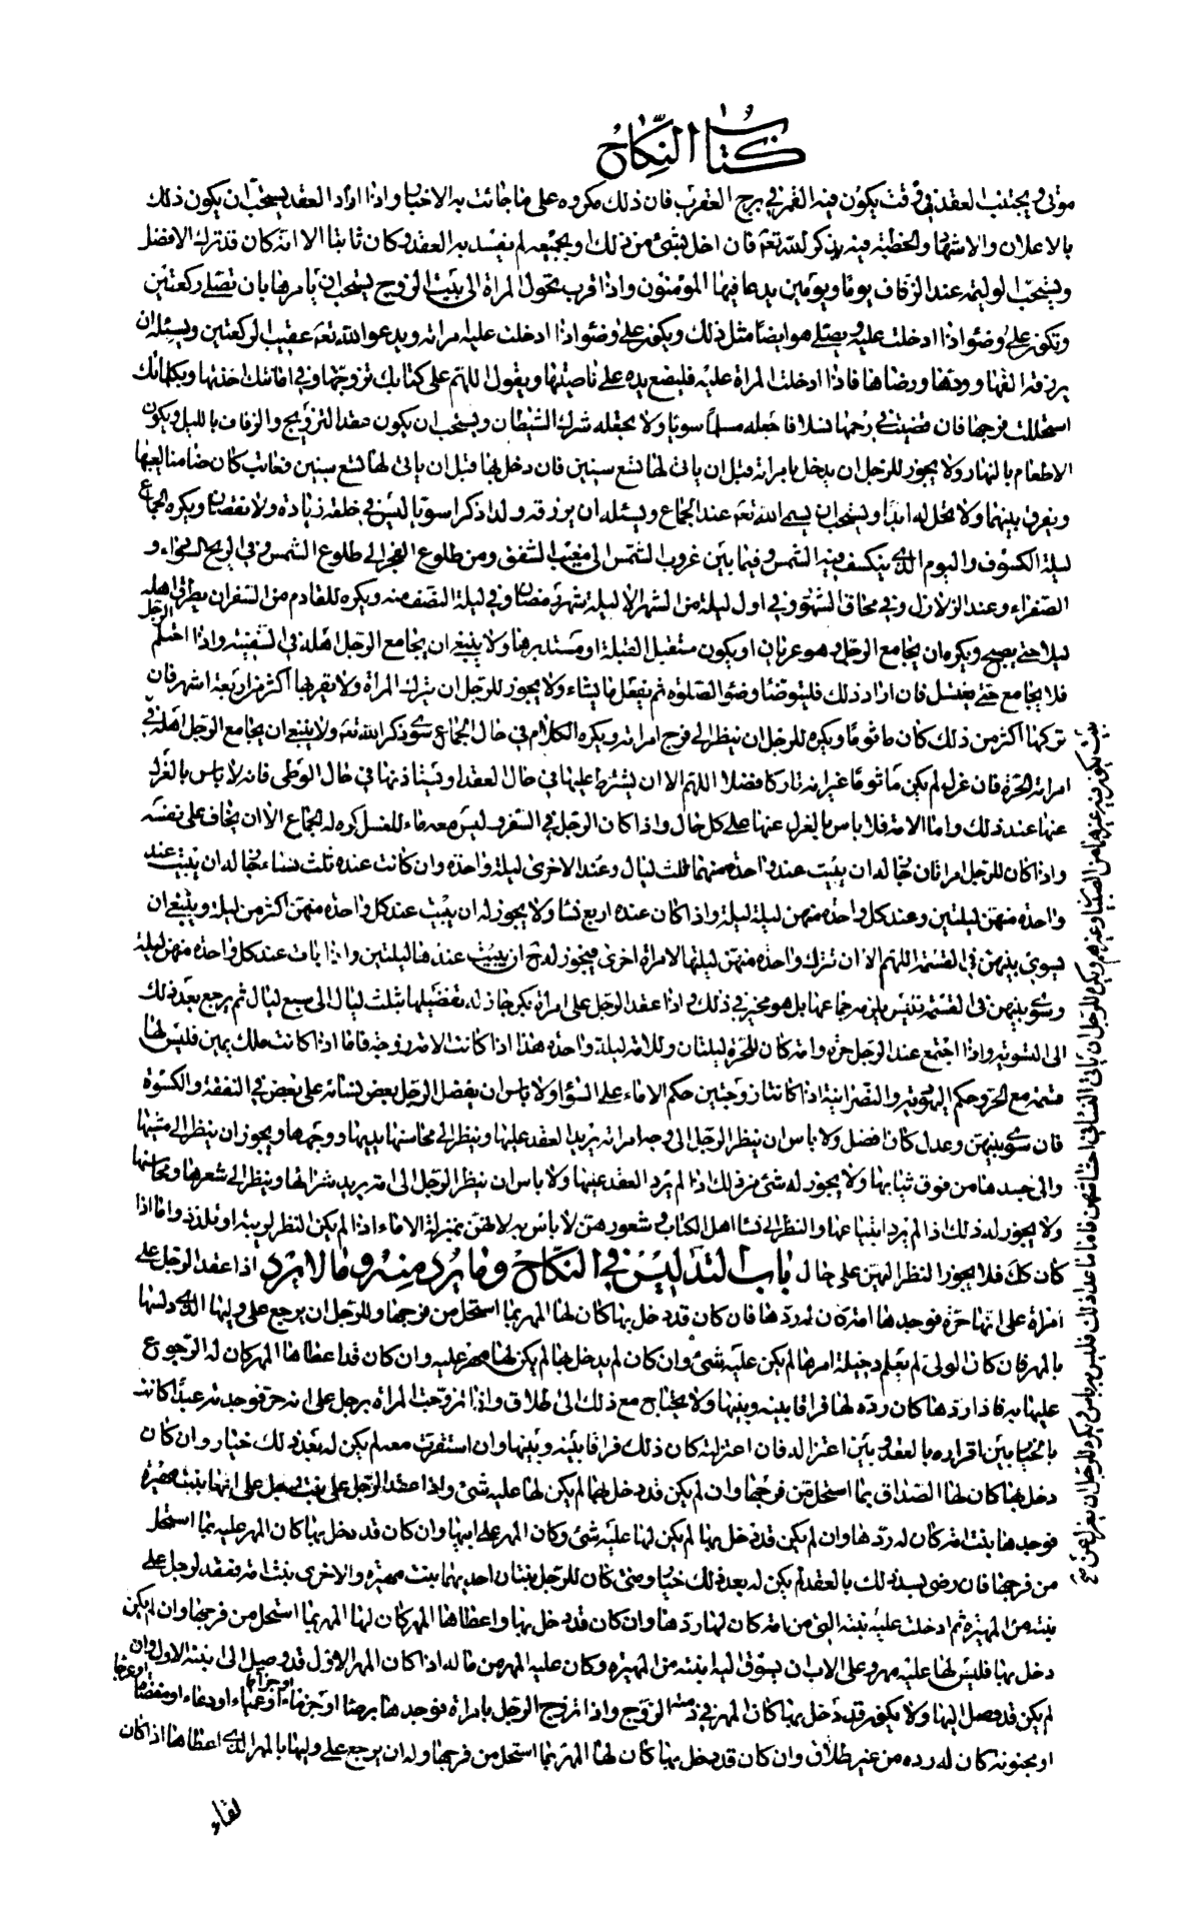 كتاب النكاح
متى و يجتنب العقد في وقت يكون فيه القمر في برج العقرب فان ذلك مكروه على ما جائت به الاخبار و اذا اراد العقد يستحب ان يكون ذلك
بالاعلان والاشهاد والخطبة فيه بذكر الله تعه فان اخل بشئ من ذلك او بجميعه لم يفسد به العقد و كان ثابتا الا انه كان قد ترك الافضل
ويستحب الوليمة عند الزفاف يوما و يومين يدعا فيها المؤمنون و اذا قرب تحول المراة الى بيت الزوج يستحب ان يأمرها بان تصلى ركعتين
وتكون على وضوء اذا ادخلت عليه و يصلى هو ايضا مثل ذلك ويكون على وضوء اذا ادخلت عليه مراته و يدعو الله تعه عقيب الركعتين ويسئله ان
يرزقه الفها و ودها و رضاها فاذا ادخلت المراة عليه فليضع يده على ناصيتها ويقول اللهم على كتابك تزوجتها وفي امانتك اخذتها وبكلماتك
استحللت فرجها فان قضيت في رحمها نسلا فاجعله مسلما سويا ولا تجعله شرك الشيطان ويستحب ان يكون عقد التزويج والزفاف بالليل ويكون
الاطعام بالنهار ولا يجوز للرجل ان يدخل بامراته قبل ان ياتى لها تسع سنين فان دخل بها قبل ان ياتى لها تسع سنين فعابت كان ضامنا لعيبها
ويفرق بينهما ولا تحل له ابدا ويستحب ان يسمى الله تعه عند الجماع ويسئله ان يرزقه ولدا ذكرا سويا ليس في خلقه زيادة ولا نقصان ويكره الجماع
ليلة الكسوف واليوم الذى ينكسف فيه الشمس و فيما بين غروب الشمس الى مغيب الشفق ومن طلوع الفجر الى طلوع الشمس وفي الريح السوداء و
الصفراء وعند الزلازل وفي محاق الشهر و في اول ليلة من الشهر الا ليلة شهر رمضان و في ليلة النصف منه و يكره للقادم من السفر ان يطرق اهله
ليلا حتى يصبح ويكره ان يجامع الرجل و هو عريان او يكون مستقبل القبلة او مستدبرها ولا ينبغى ان يجامع الرجل اهله في السفينة و اذا احتلم الرجل
فلا يجامع حتى يغتسل فان اراد ذلك فليتوضأ وضوء الصلوة ثم يفعل ما يشاء ولا يجوز للرجل ان يترك المراة ولا يقربها اكثر من اربعة اشهر فان
تركها اكثر من ذلك كان ماثوما ويكره للرجل ان ينظر الى فرج امراته ويكره الكلام في حال الجماع سوى ذكر الله تعه ولا ينبغى ان يجامع الرجل اهله في
بيت يكون فيه غيرها من الصبيان وغيرهم ويكره للرجل ان ياتى النساء في احشائهن فاما ما عدا ذلك فليس به باس ويكره للرجل ان يعزل عن
امراته الحرة فان عزل لم يكن ماثوما غير انه تاركا فضلا اللهم الا ان يشترط عليها في حال العقد او يستاذنها في حال الوطى فانه لا باس بالعزل
عنها عند ذلك و اما الامة فلا باس بالعزل عنها على كل حال و اذا كان الرجل في السفر و ليس معه ماء للغسل كره له الجماع الا ان يخاف على نفسه
و اذا كان للرجل امراتان جاز له ان يبيت عند واحدة منهما ثلث ليال و عند الاخرى ليلة واحدة و ان كانت عنده ثلث نساء جاز له ان يبيت عند
واحدة منهن ليلتين و عند كل واحدة منهن ليلة ليلة و اذا كان عنده اربع نساء ولا يجوز له ان يبيت عند كل واحدة منهن اكثر من ليلة و ينبغى ان
يسوى بينهن في القسمة اللهم الا ان تترك واحدة منهن ليلتها لامراة اخرى فيجوز له ح ان يبيت عندها ليلتين و اذا بات عند كل واحدة منهن ليلة
وسوى بينهن في القسمة فليس يلزمه جماعها بل هو مخير في ذلك و اذا عقد الرجل على امراة بكر جاز له تفضيلها بثلث ليال الى سبع ليال ثم يرجع بعد ذلك
الى التسوية و اذا اجتمع عند الرجل حرة و امة كان للحرة ليلتان و للامة ليلة واحدة هذا اذا كانت الامة زوجة فاما اذا كانت ملك يمين فليس لها
قسمة مع الحرة و حكم اليهودية والنصرانية اذا كانتا زوجتين حكم الاماء على السواء و لا باس ان يفضل الرجل بعض نسائه على بعض في النفقة والكسوة
فان سوى بينهن وعدل كان افضل ولا باس ان ينظر الرجل الى وجه امراة يريد العقد عليها وينظر الى محاسنها يديها و وجهها ويجوز ان ينظر الى مشيتها
والى جسدها من فوق ثيابها و لا يجوز له شئ من ذلك اذا لم يرد العقد عليها ولا باس ان ينظر الرجل الى امة يريد شراءها وينظر الى شعرها و محاسنها
ولا يجوز له ذلك اذا لم يرد ابتياعها والنظر الى نساء اهل الكتاب و شعورهن لا باس به لانهن بمنزلة الاماء اذا لم يكن النظر لريبة او تلذذ و اما اذا
كان كك فلا يجوز النظر اليهن على حال باب التدليس في النكاح وما يرد منه و ما لا يرد اذا عقد الرجل على
امراة على انها حرة فوجدها امة كان له ردها فان كان قد دخل بها كان لها المهر بما استحل من فرجها و للرجل ان يرجع على وليها الذى دلسها
بالمهر فان كان الولى لم يعلم دخيلة امرها لم يكن عليه شئ و ان كان لم يدخل بها لم يكن لها مهر عليه و ان كان قد اعطاها المهر كان له الرجوع
عليها به فاذا ردها كان رده لها فراقا بينه وبينها ولا يحتاج مع ذلك الى طلاق و اذا تزوجت المراة برجل على انه حر فوجدته عبدا كانت
بالخيار بين اقراره بالعقد و بين اعتزاله فان اعتزلته كان ذلك فراقا بينه وبينها و ان استقرت معه لم يكن له بعد ذلك خيار و ان كان
دخل بها كان لها الصداق بما استحل من فرجها و ان لم يكن قد دخل بها لم يكن لها عليه شئ و اذا عقد الرجل على بنت رجل على انها بنت مهيرة
فوجدها بنت امة كان له ردها و ان لم يكن قد دخل بها لم يكن لها عليه شئ و كان المهر على ابيها و ان كان قد دخل بها كان المهر عليه بما استحل
من فرجها فان رضى بعد ذلك بالعقد لم يكن له بعد ذلك خيار و متى كان للرجل بنتان احديهما بنت مهيرة والاخرى بنت امة فعقد لرجل على
بنته من المهيرة ثم ادخلت عليه بنته التى من امة كان له ردها و ان كان قد دخل بها و اعطاها المهر كان لها المهر بما استحل من فرجها و ان لم يكن
دخل بها فليس لها عليه مهر و على الاب ان يسوق اليه ابنته من المهيرة و كان عليه المهر من ماله اذا كان المهر الاول قد وصل الى ابنته الاولى و ان
لم يكن قد وصل اليها ولا يكون قد دخل بها كان المهر في ذمة الزوج و اذا تزوج الرجل بامراة فوجدها برصاء او جذماء او عمياء او رتقاء او مفضاة او عرجاء
او مجنونة كان له رده من غير طلاق و ان كان قد دخل بها كان لها المهر بما استحل من فرجها و له ان يرجع على وليها بالمهر الذى اعطاها اذا كان